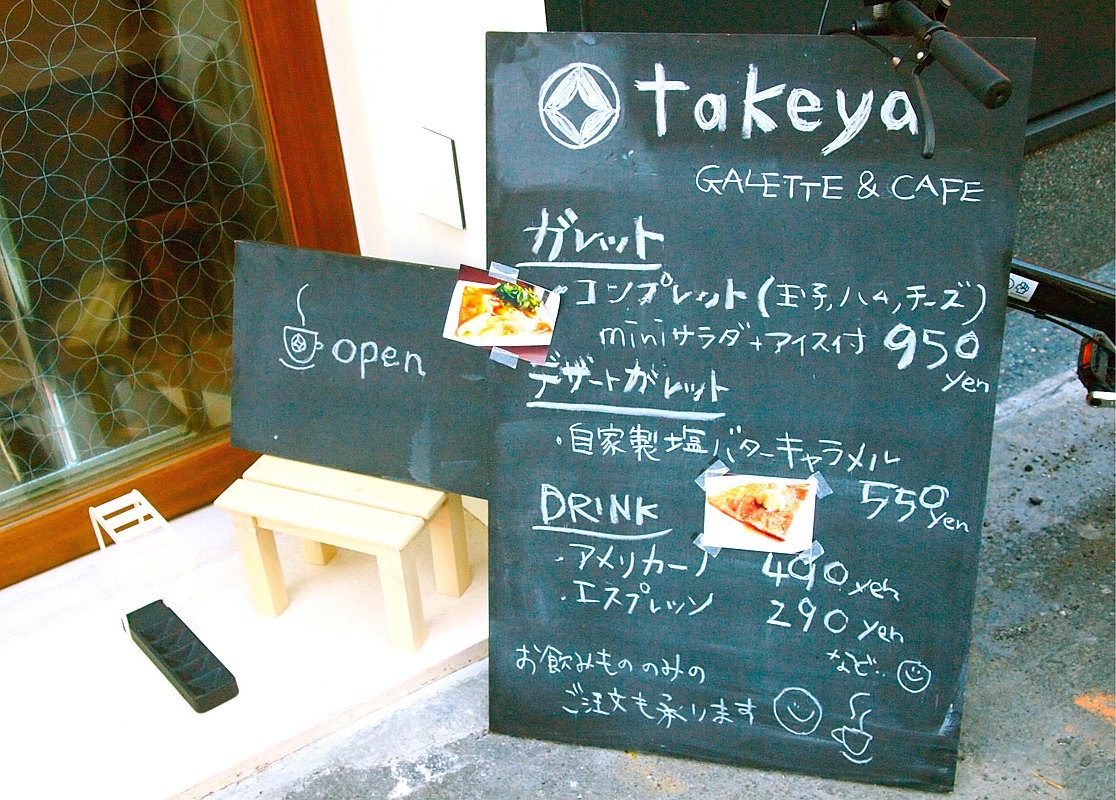 takeya
GALETTE & CAFE
ガレット
・コンプレット(玉子,ハム,チーズ)
miniサラダ+アイス付 950
yen
open
デザートガレット
・自家製塩バターキャラメル
550yen
DRINK
・アメリカーノ 490yen
・エスプレッソ 290 yen
など‥
お飲みもののみの
ご注文も承ります